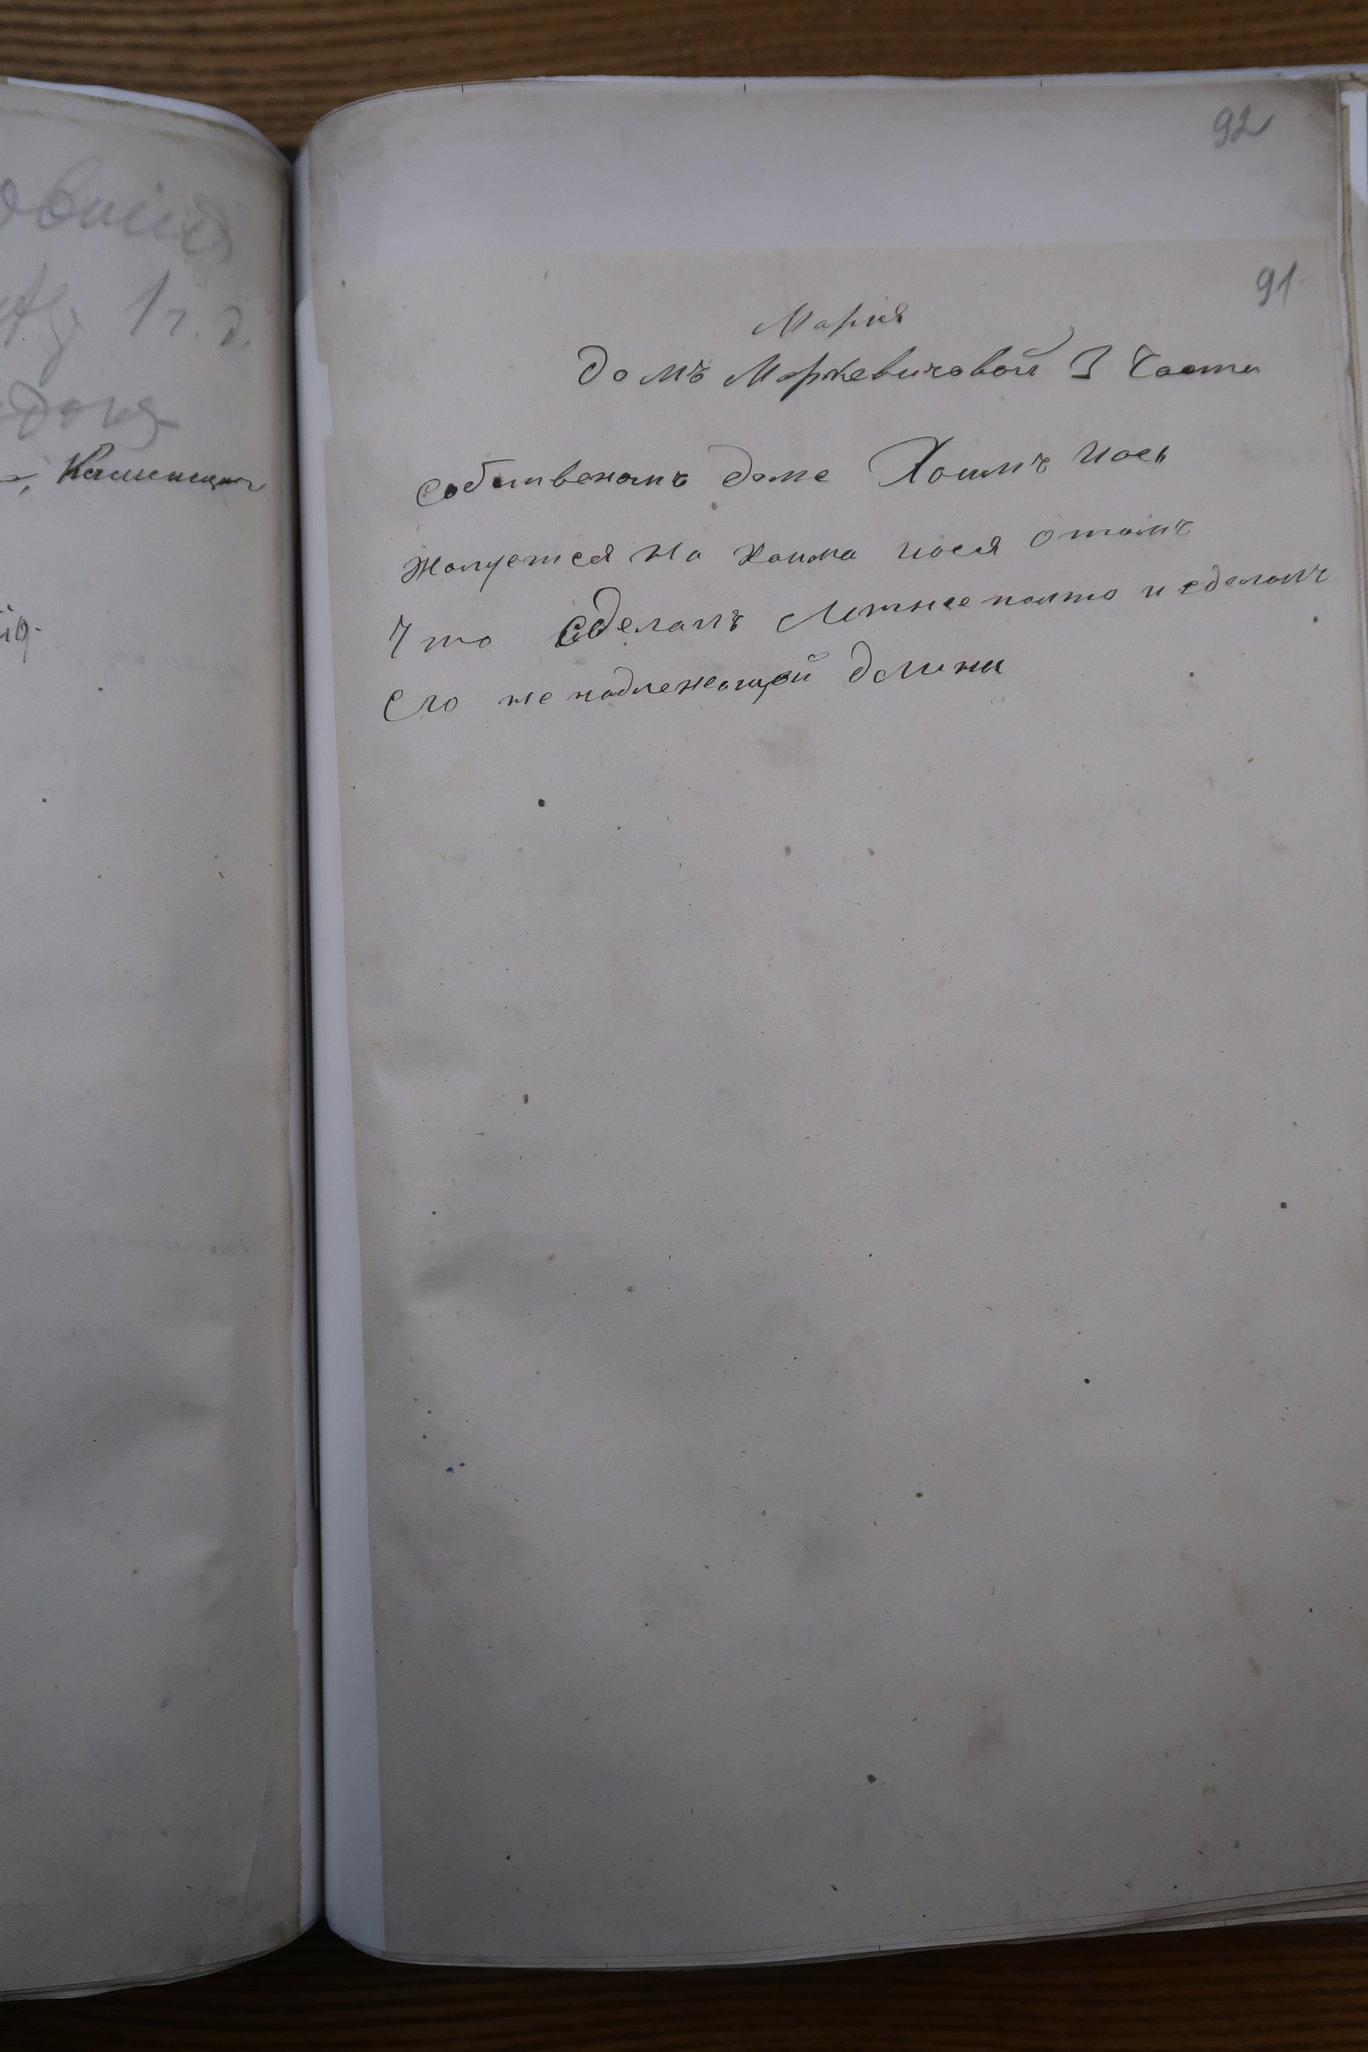 92
91
Мария
домъ Маркевичовой 3 Части
собственомъ доме Хаимъ Иось
Жалуется на хаима иося отомъ
Что Сделалъ Летнее палто и сделалъ
Его не надлежащой длины